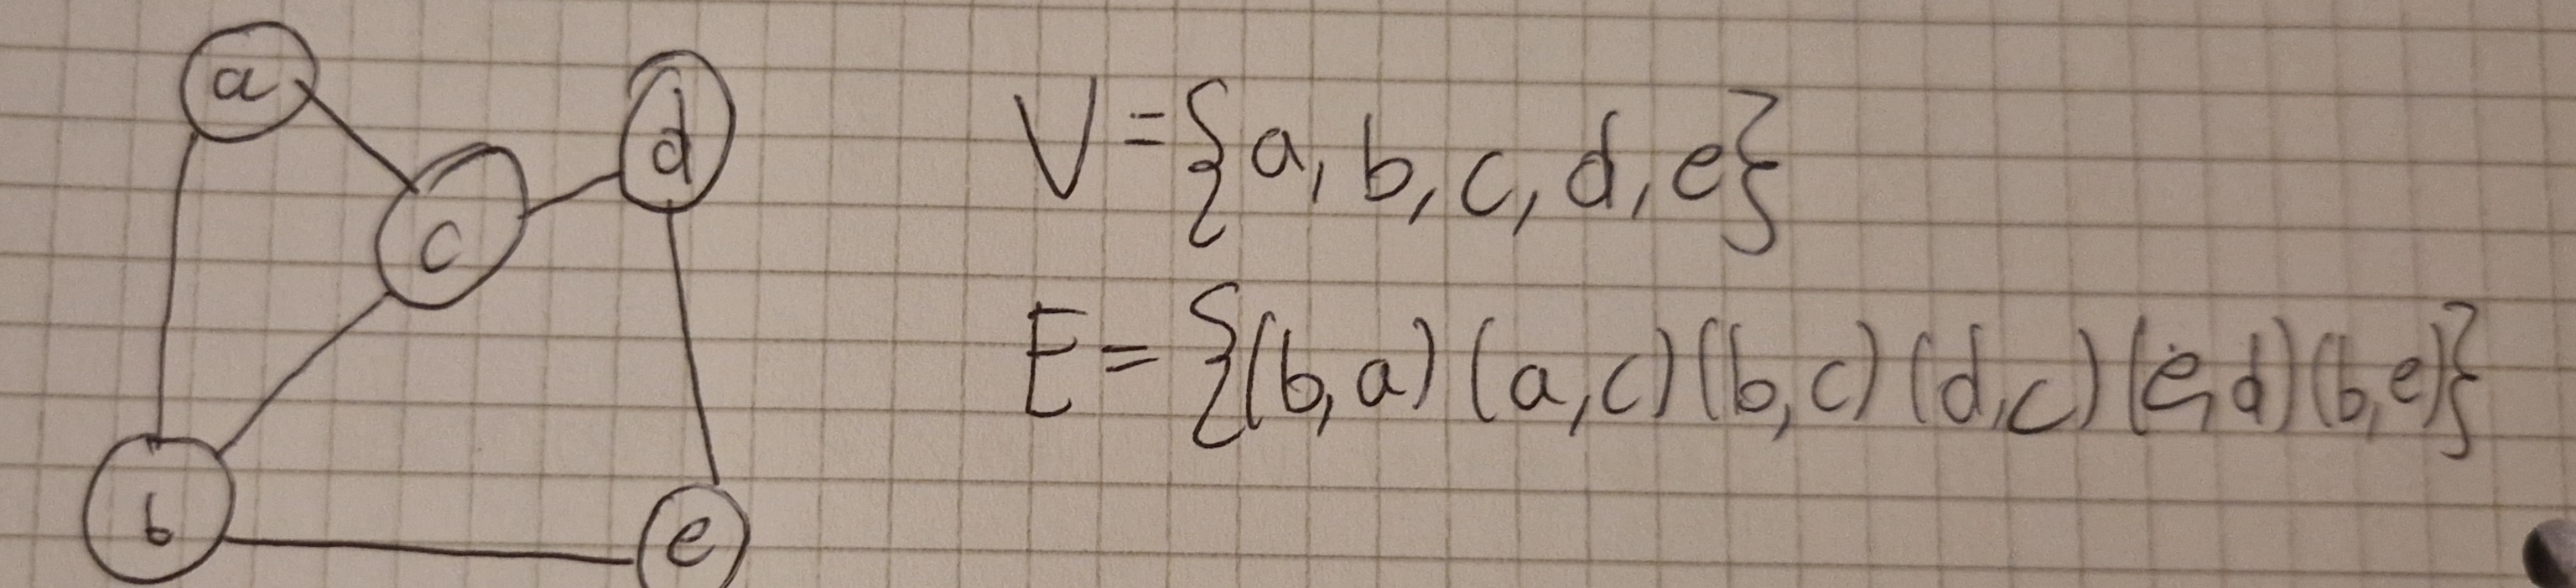 a
d
c
b
e
V={a, b, c, d, e}
E={(b,a) (a,c) (b,c) (d,c) (e,d) (b,e)}